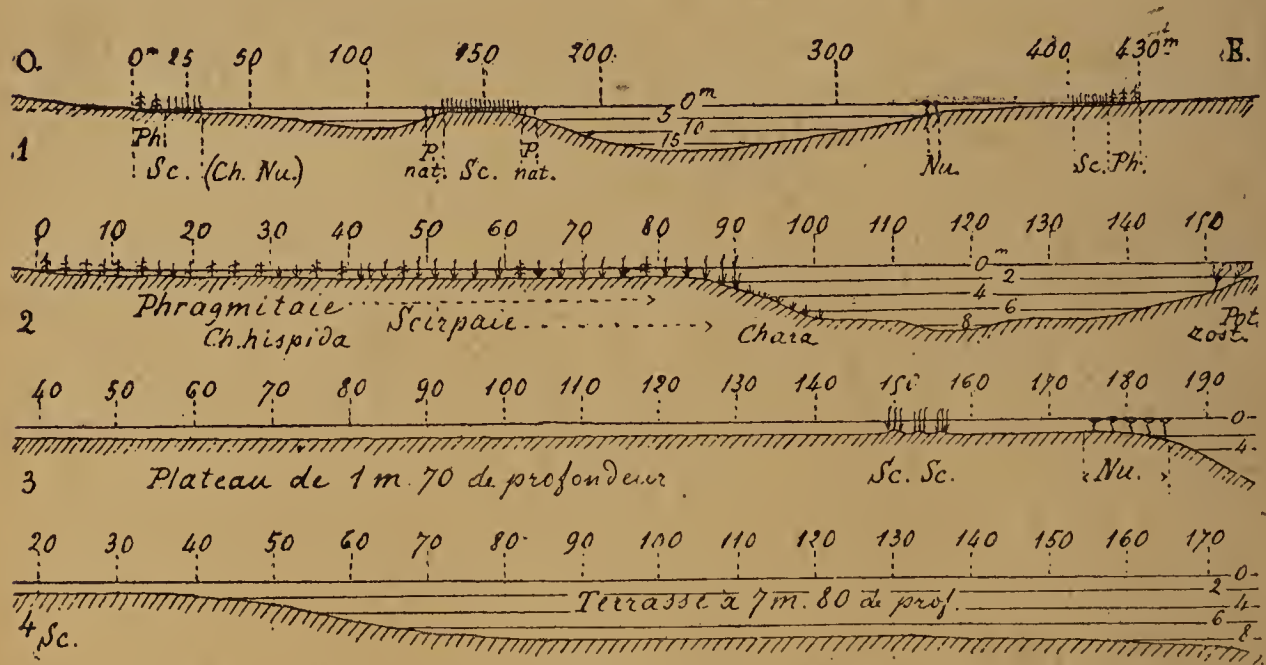 O. 0m 25 50 100 150 200 300 400 430m E.
0m
5
10
15
1
Ph. Sc. (Ch. Nu.) P. nat. Sc. P. nat. Nu. Sc. Ph.
0 10 20 30 40 50 60 70 80 90 100 110 120 130 140 150
0m
2
4
6
8
2
Phragmitaie
Scirpaie
Ch. hispida Chara Pot. zost.
40 50 60 70 80 90 100 110 120 130 140 150 160 170 180 190
0
4
3
Plateau de 1 m. 70 de profondeur Sc. Sc. Nu.
20 30 40 50 60 70 80 90 100 110 120 130 140 150 160 170
0
2
4
6
8
Terrasse à 7 m. 80 de prof.
4 Sc.